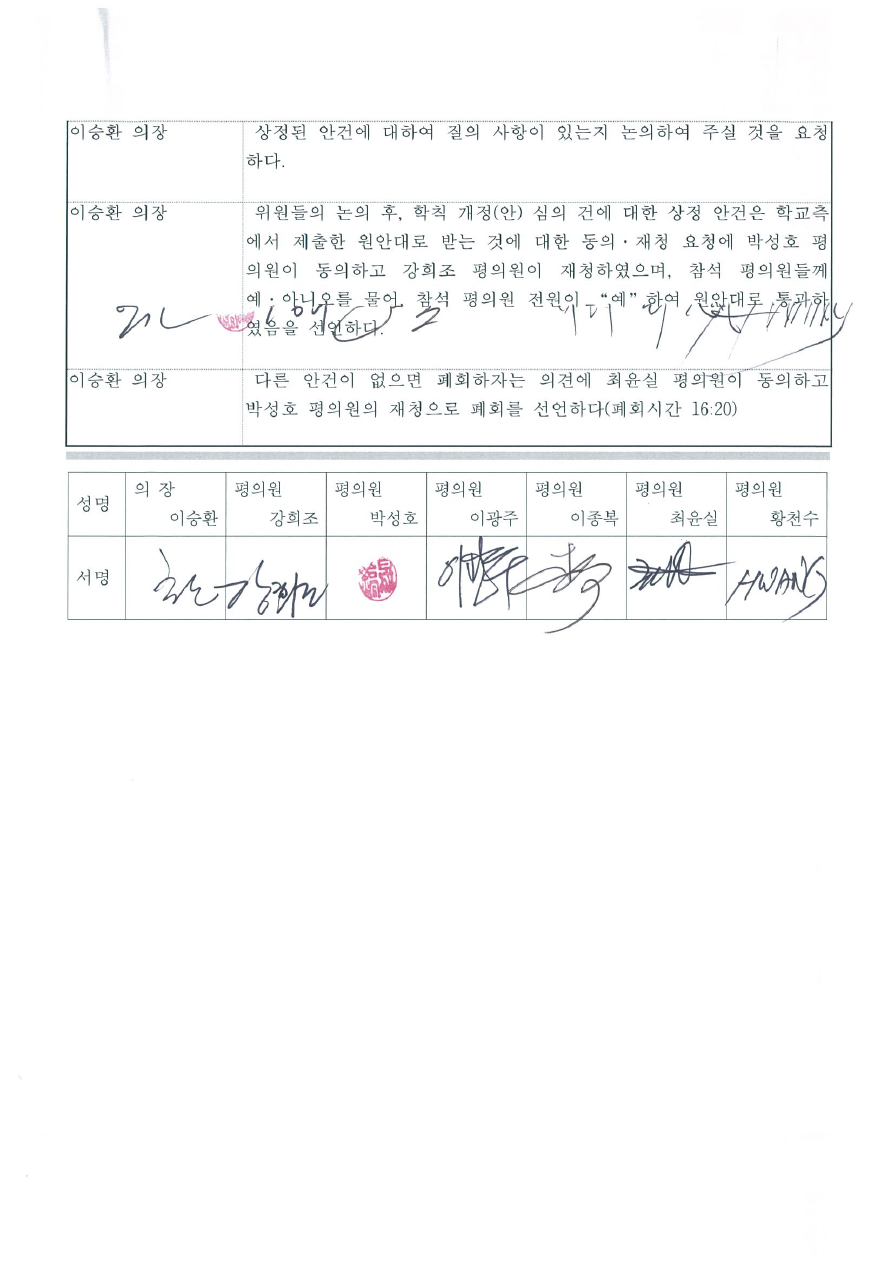 이승환 의장
상정된 안건에 대하여 질의 사항이 있는지 논의하여 주실 것을 요청
하다.
이승환 의장
위원들의 논의 후, 학칙 개정(안) 심의 건에 대한 상정 안건은 학교측
에서 제출한 원안대로 받는 것에 대한 동의·재청 요청에 박성호 평
의원이 동의하고 강희조 평의원이 재청하였으며, 참석 평의원들께
예·아니오를 물어, 참석 평의원 전원이 “예”하여 원안대로 통과하
였음을 선언하다.
이승환 의장
다른 안건이 없으면 폐회하자는 의견에 최윤실 평의원이 동의하고
박성호 평의원의 재청으로 폐회를 선언하다(폐회시간 16:20)
성명
의 장
이승환
평의원
강희조
평의원
박성호
평의원
이광주
평의원
이종복
평의원
최윤실
평의원
황천수
서명
강희조
HWANG